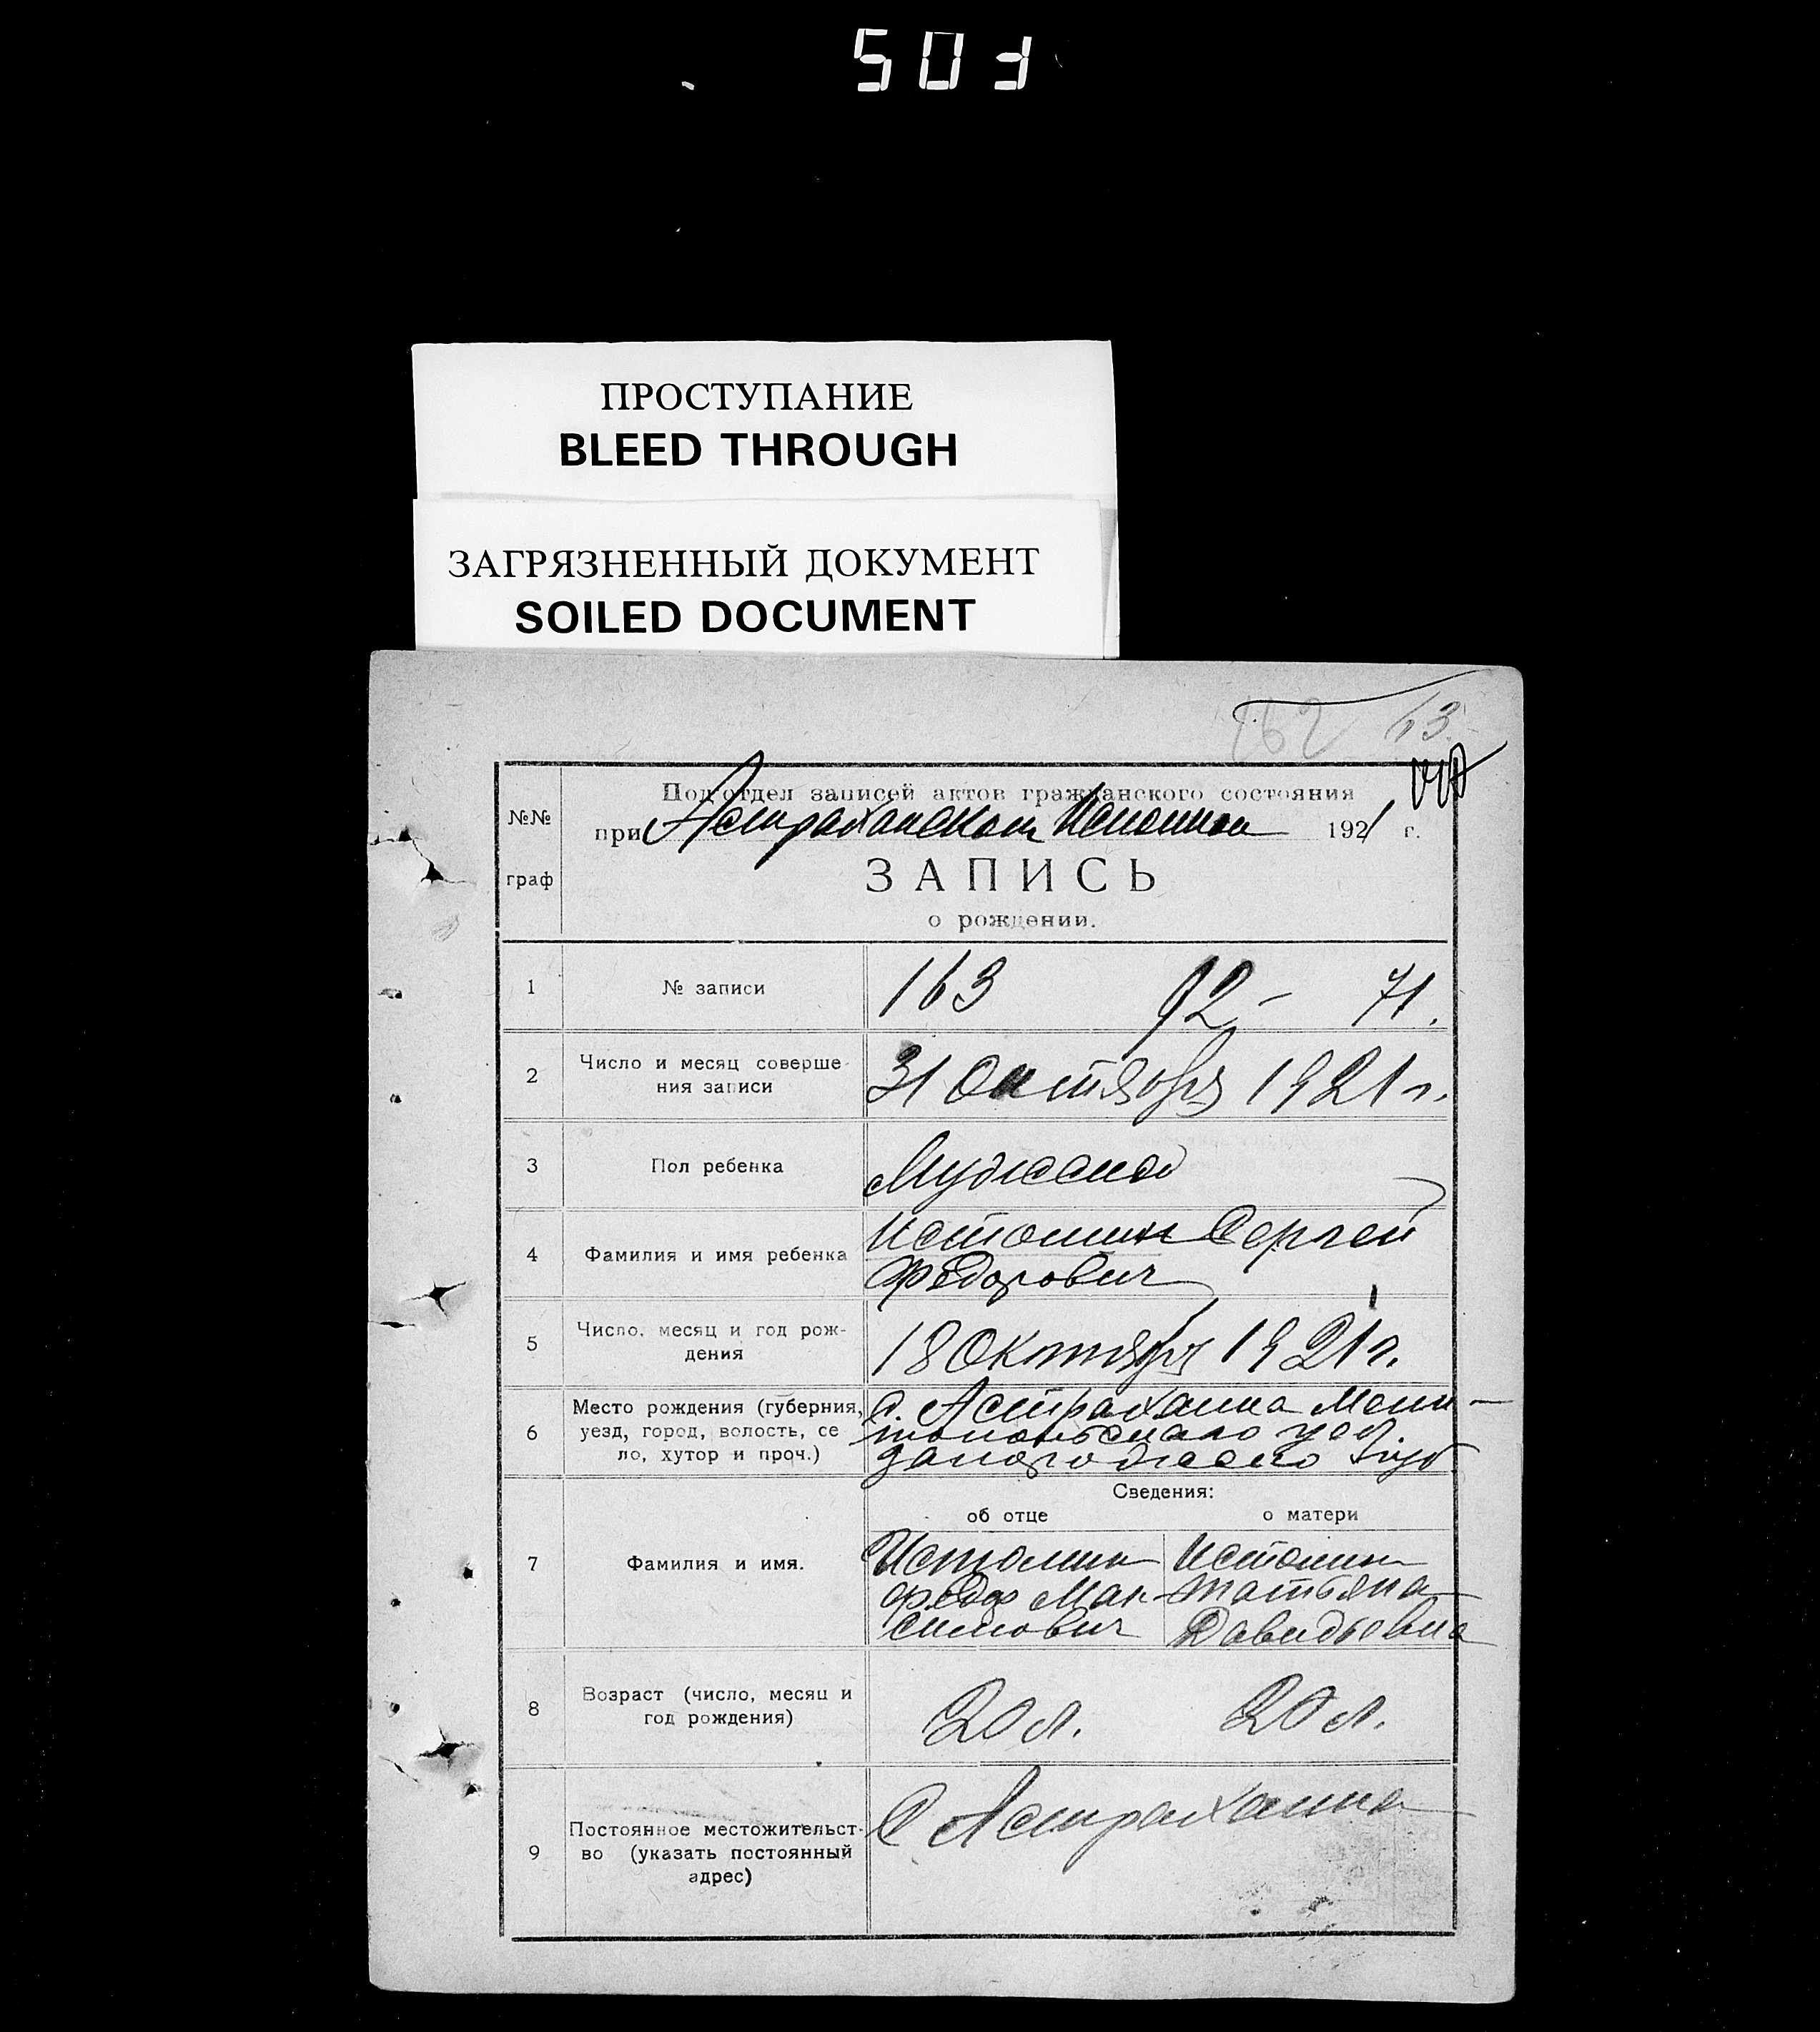 503
ПРОСТУПАНИЕ
BLEED THROUGH
ЗАГРЯЗНЕННЫЙ ДОКУМЕНТ
SOILED DOCUMENT
162 13
№№ граф
Под'отдел записей актов гражданского состояния
при Астраханском 1921 г.
ЗАПИСЬ
о рождении.
1 № записи 163 92 - 71.
2 Число и месяц соверше-
ния записи 31 Октября 1921 г.
3 Пол ребенка Мужской
4 Фамилия и имя ребенка Истомин Сергей
Федорович
5 Число, месяц и год рож-
дения 18 Октября 1921 г.
6 Место рождения (губерния, с. Астраханка Мели-
уезд, город, волость, се топольского уез.
ло, хутор и проч.) Запорожской губ
Сведения:
об отце о матери
7 Фамилия и имя. Истомин Истомина
Федор Мак- Татьяна
симович Давидовна
8 Возраст (число, месяц и
год рождения) 20 л. 20 л.
С Астраханка
9 Постоянное местожительст-
во (указать постоянный
адрес)